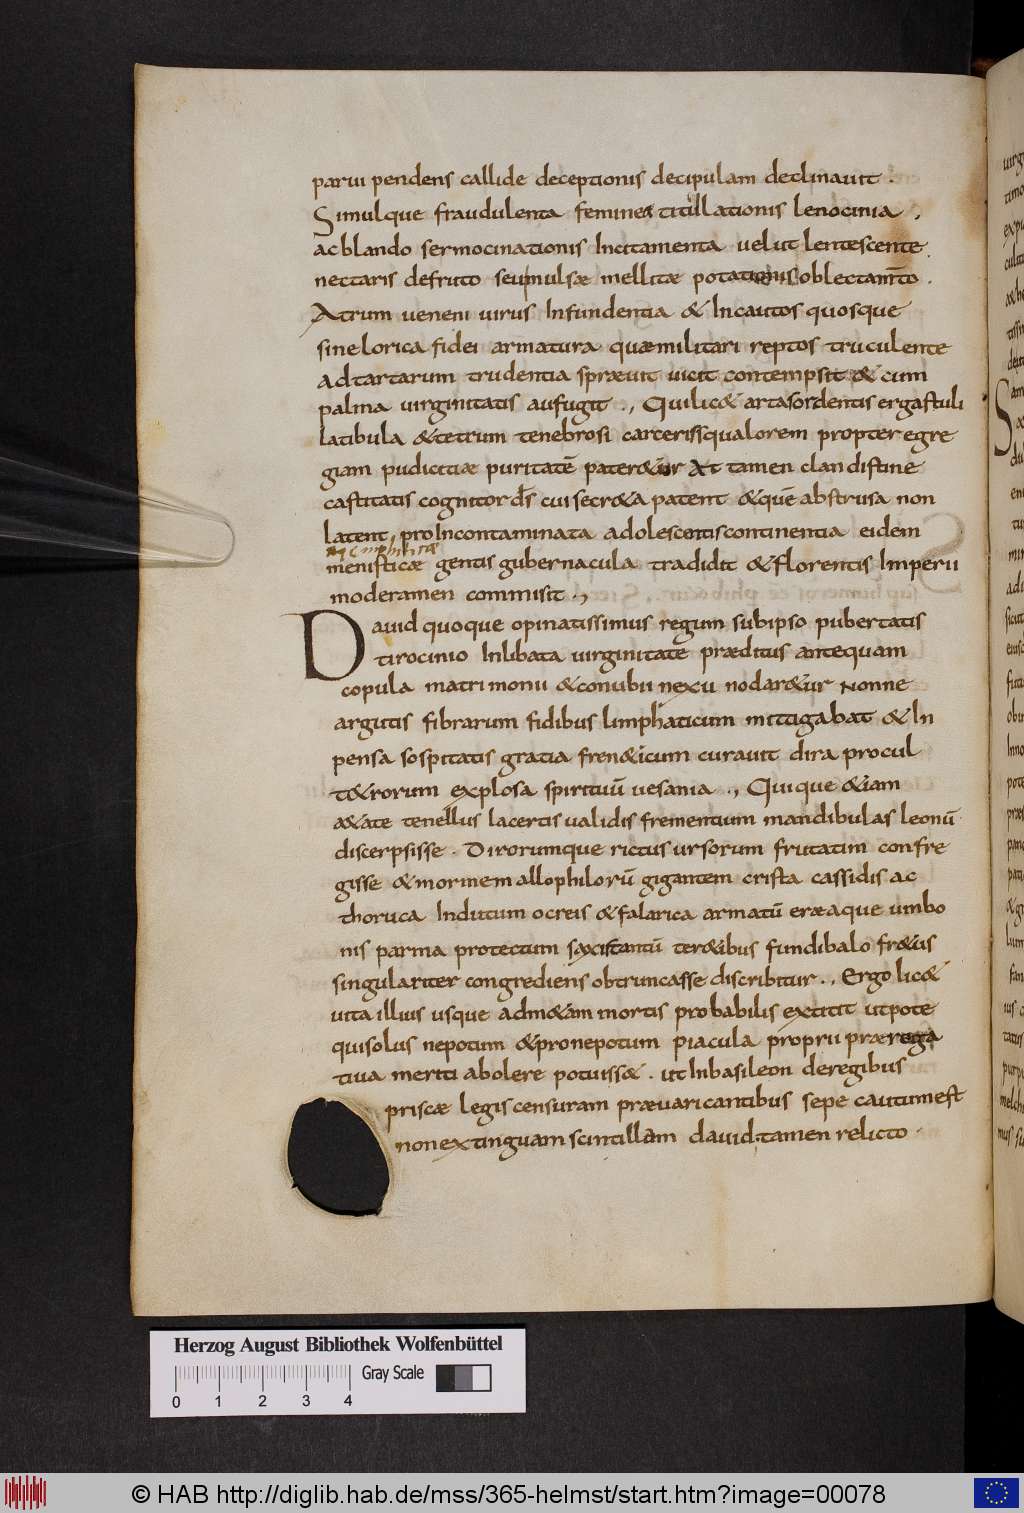 parui pendens callide deceptionis decipulam declinauit .
Simulque fraudulenta femineȩ titillationis lenocinia .
ac blando sermocinationis Incitamenta uelut lentescente
nectaris defruto seu mulsæ mellitæ potationis oblectam̄to .
Atrum ueneni uirus Infundentia & Incautos quosque
sine lorica fidei armatura quæ militari reptos truculente
ad tartarum trudentia spræuit uicit contempsit & cum
palma uirginitatis aufugit ., Qui lic& arta sordentis ergastuli
latibula & tetrum tenebrosi carceris squalorem propter egre
giam pudicitiæ puritatē pater&ur At tamen clandistine
castitatis cognitor d̄s cui secr&a patent & quē abstrusa non
latent, pro Incontaminata adolescentis continentia eidem
memphiticæ
menisticæ gentis gubernacula tradidit & florentis Imperii
moderamen commisit .,
Dauid quoque opinatissimus regum sub ipso pubertatis
tirocinio Inlibata uirginitate præditus antequam
copula matrimonii & conubii nexu nodar&ur nonne
argutis fibrarum fidibus limphaticum mitigabat & In
pensa sospitatis gratia fren&icum curauit dira procul
t&rorum explosa spirituū uesania ., Qui que &iam
a&ate tenellus lacertis ualidis frementium mandibulas leonū
discerpsisse . Dirorumque rictus ursorum frutatim confre
gisse & mormem allophilorū gigantem crista cassidis ac
thoruca Indutum ocreis & falarica armatū eræaque umbo
nis parma protectum ter&ibus fundibalo fr&us
singulariter congrediens obtruncasse discribitur ., Ergo lic&
uita illius usque ad m&am mortis probabilis extitit utpote
qui solus nepotum & pronepotum piacula proprii præroga
tiua meriti abolere potuiss& . ut In basileon de regibus
priscæ legis censuram præuaricantibus sepe cautum est
non extinguam scintillam dauid tamen relicto .
Herzog August Bibliothek Wolfenbüttel
Gray Scale
0 1 2 3 4
© HAB http://diglib.hab.de/mss/365-helmst/start.htm?image=00078